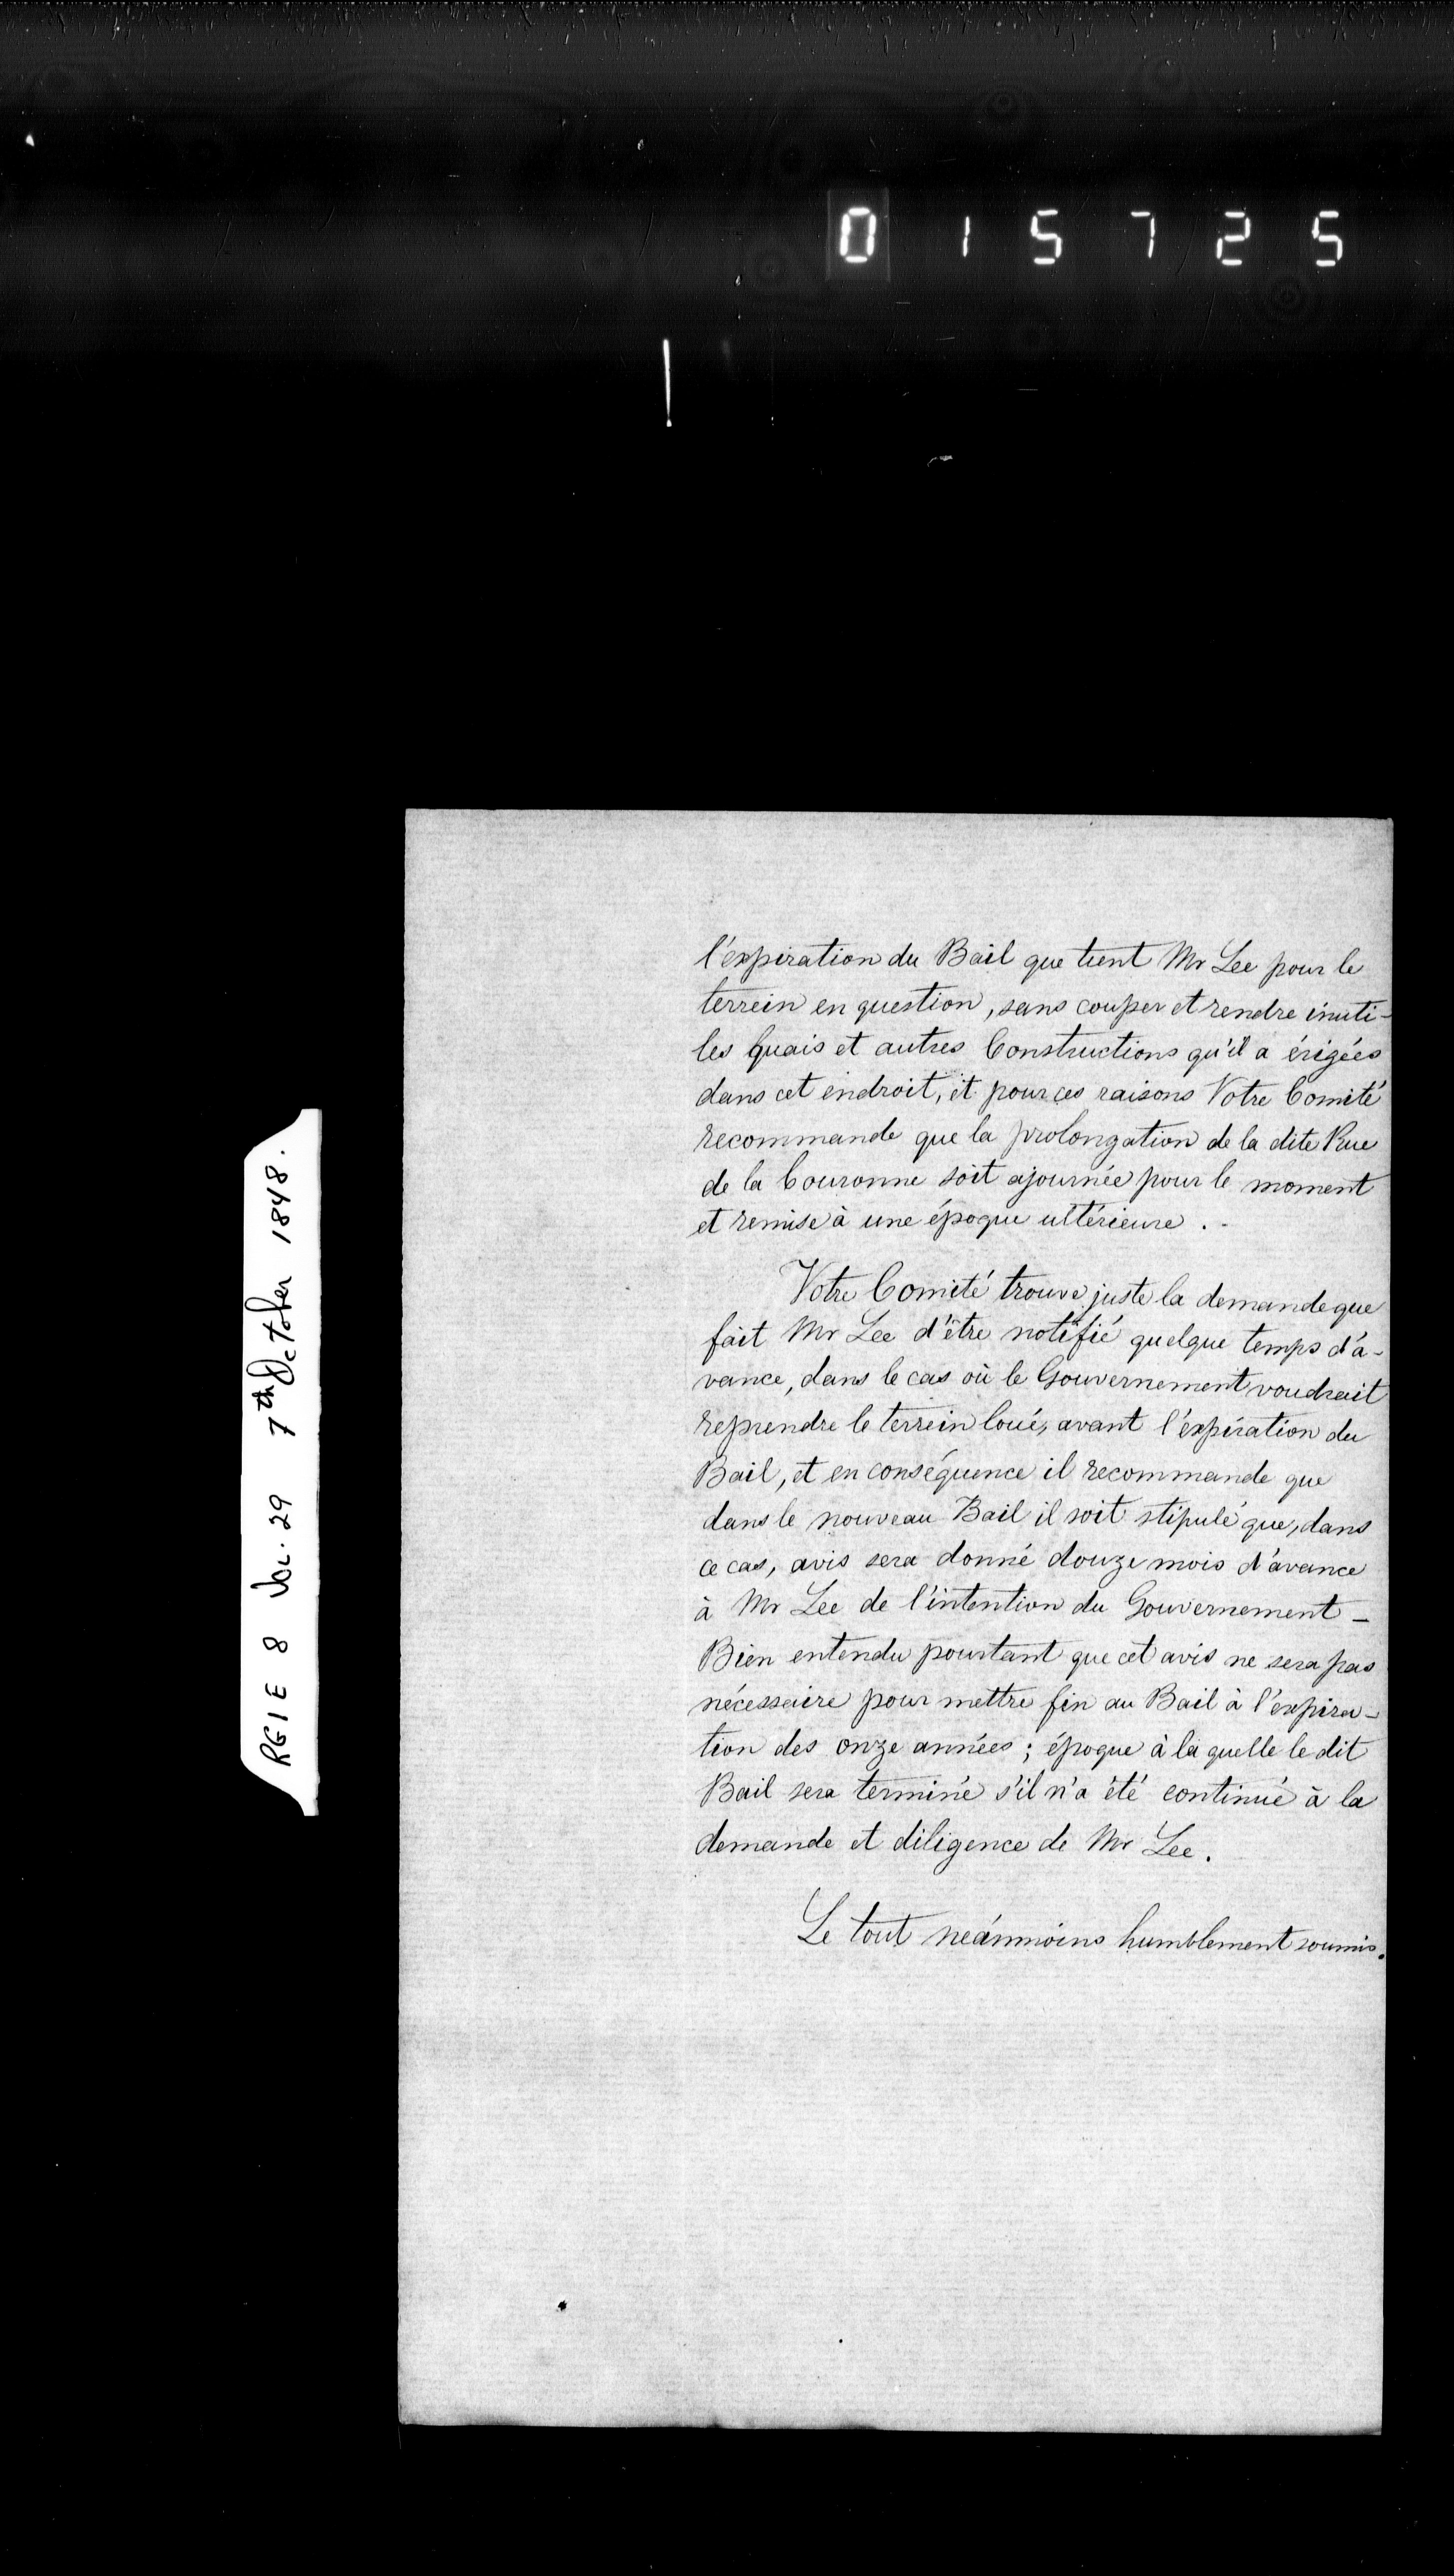 015725
RG1 E 8 Vol. 29 7th October 1848.
l'expiration du Bail que tient Mr Lee pour le
terrein en question, sans couper et rendre inuti-
les Quais et autres Constructions qu'il a érigées
dans cet endroit, et pour ces raisons Votre Comité
recommande que la prolongation de la dite Rue
de la Couronne soit ajournée pour le moment
et remise à une époque ultérieure . -
Votre Comité trouve juste la demande que
fait Mr Lee d'être notifié quelque temps d'a-
vance, dans le cas où le Gouvernement voudrait
reprendre le terrein loué, avant l'expiration du
Bail, et en conséquence il recommande que
dans le nouveau Bail il soit stipulé que, dans
ce cas, avis sera donné douze mois d'avance
à Mr Lee de l'intention du Gouvernement -
Bien entendu pourtant que cet avis ne sera pas
nécessaire pour mettre fin au Bail à l'expira-
tion des onze années ; époque à la quelle le dit
Bail sera terminé s'il n'a été continué à la
demande et diligence de Mr Lee.
Le tout néanmoins humblement soumis.